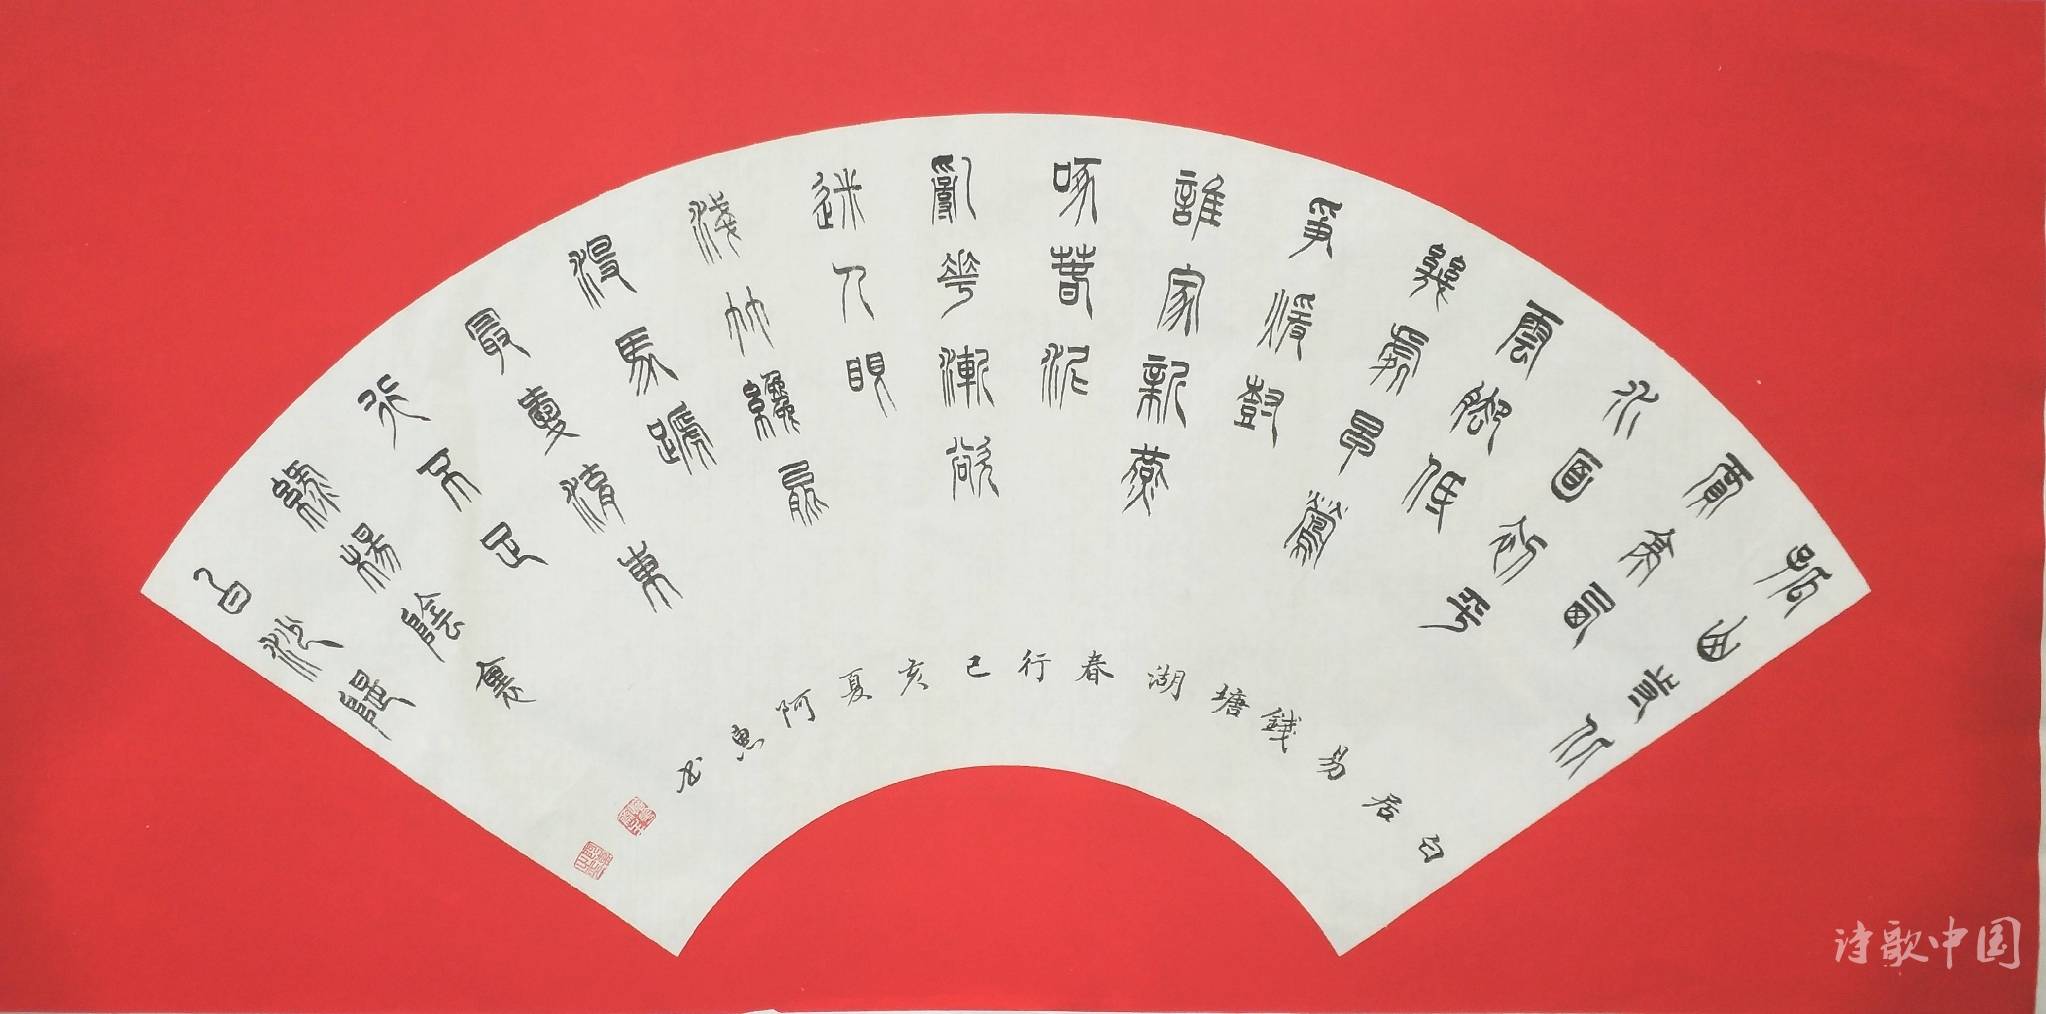 孤山寺北
賈亭西
水面初平
雲腳低
幾處早鶯
爭暖樹
誰家新燕
啄春泥
亂花漸欲
迷人眼
淺艸纔能
沒馬蹄
最愛湖東
行不足
綠楊陰裏
白沙隄
白居易錢塘湖春行己亥夏阿惠书
诗歌中国